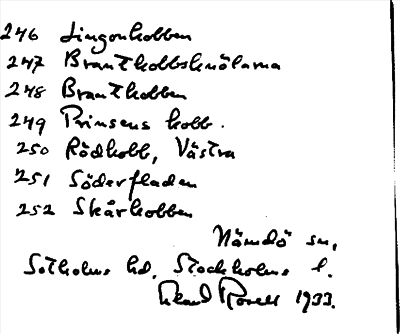 246 Lingonkobben
247 Brantkobbsknölarna
248 Brantkobben
249 Prinsens kobb.
250 Rödkobb, Västra
251 Söderfladen
252 Skårkobben
Nämdö sn,
Sotholms hd, Stockholms l.
1933.